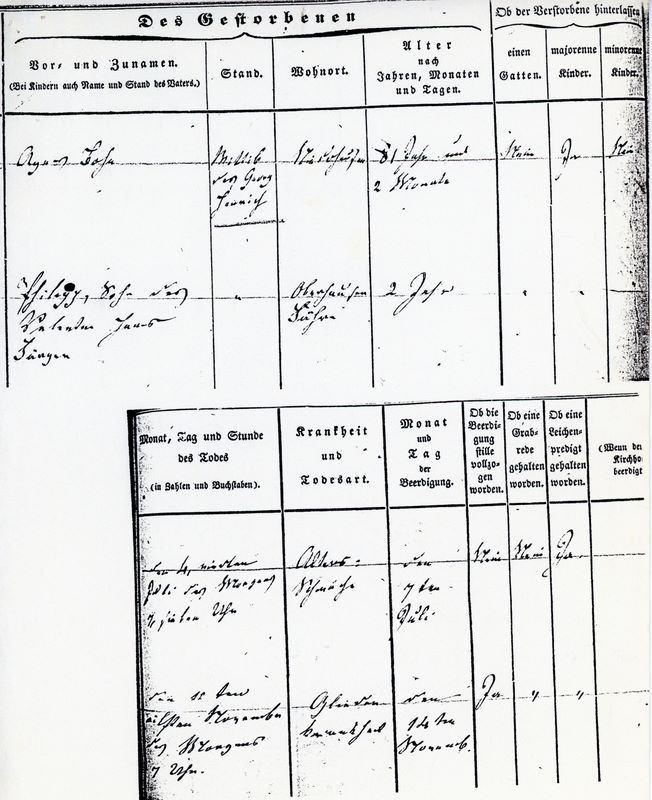 Des Gestorbenen
Ob der Verstorbene hinterlassen
Vor- und Zunamen.
(Bei Kindern auch Name und Stand des Vaters.)
Stand.
Wohnort.
Alter
nach
Jahren, Monaten
und Tagen.
einen
Gatten.
majorenne
Kinder.
minorenne
Kinder.
Agnes
Wittib
des Georg
Henrich
81 Jahr und
2 Monate
Nein
Ja
Nein
Philipp, Sohn des
Valentin
Jürgen
"
Oberhausen
2 Jahr
"
"
"
Monat, Tag und Stunde
des Todes
(in Zahlen und Buchstaben).
Krankheit
und
Todesart.
Monat
und
Tag
der
Beerdigung.
Ob die
Beerdi-
gung
stille
vollzo-
gen
worden.
Ob eine
Grab-
rede
gehalten
worden.
Ob eine
Leichen-
predigt
gehalten
worden.
(Wenn der
Kirchho
beerdigt
den 4, vierten
Juli des Morgens
Uhr
Alters-
Schwäche
den
7ten
Juli
Nein
Nein
Ja
den 11 ten
eilften November
des Morgens
7 Uhr.
Glieder
krankheit
den
14 ten
Novemb.
Ja
"
"